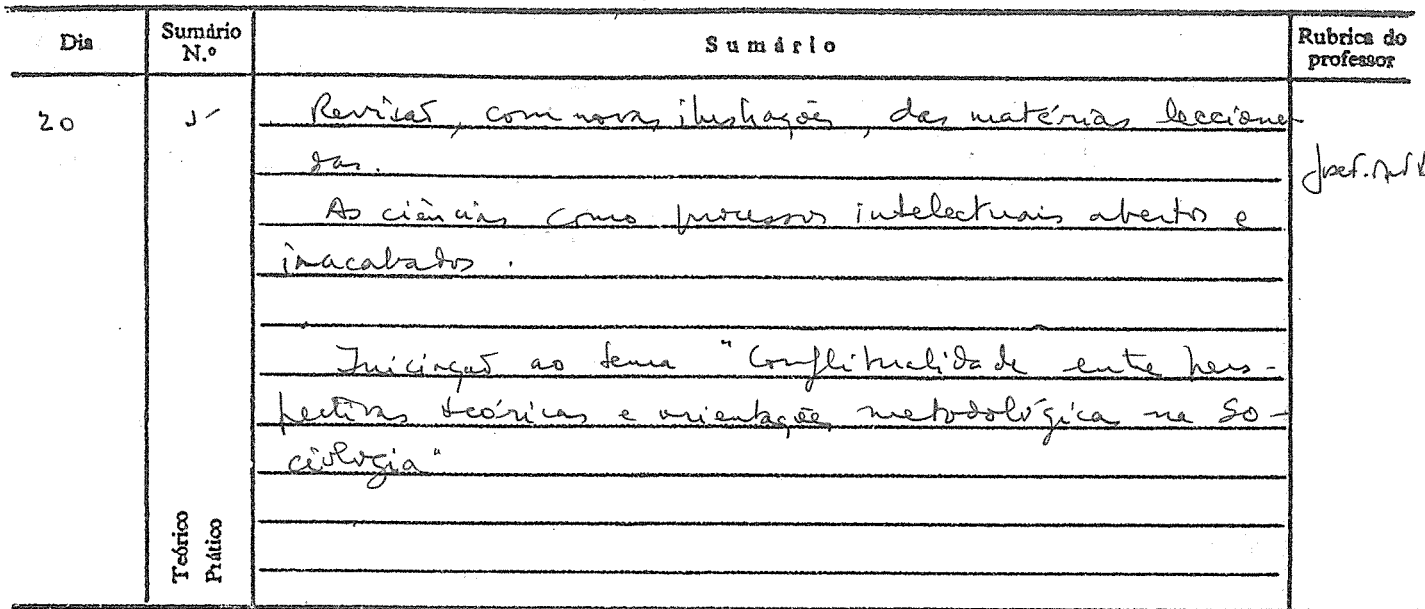 Dia
Sumário N.º
Sumário
Rubrica do professor
20
Revisão, com novas ilustrações, das matérias lecciona-
das.
As ciências como processos intelectuais abertos e
inacabados.
Iniciação ao tema "Conflitualidade entre pers-
pectivas teóricas e orientações metodológicas na So-
ciologia"
Teórico
Prático